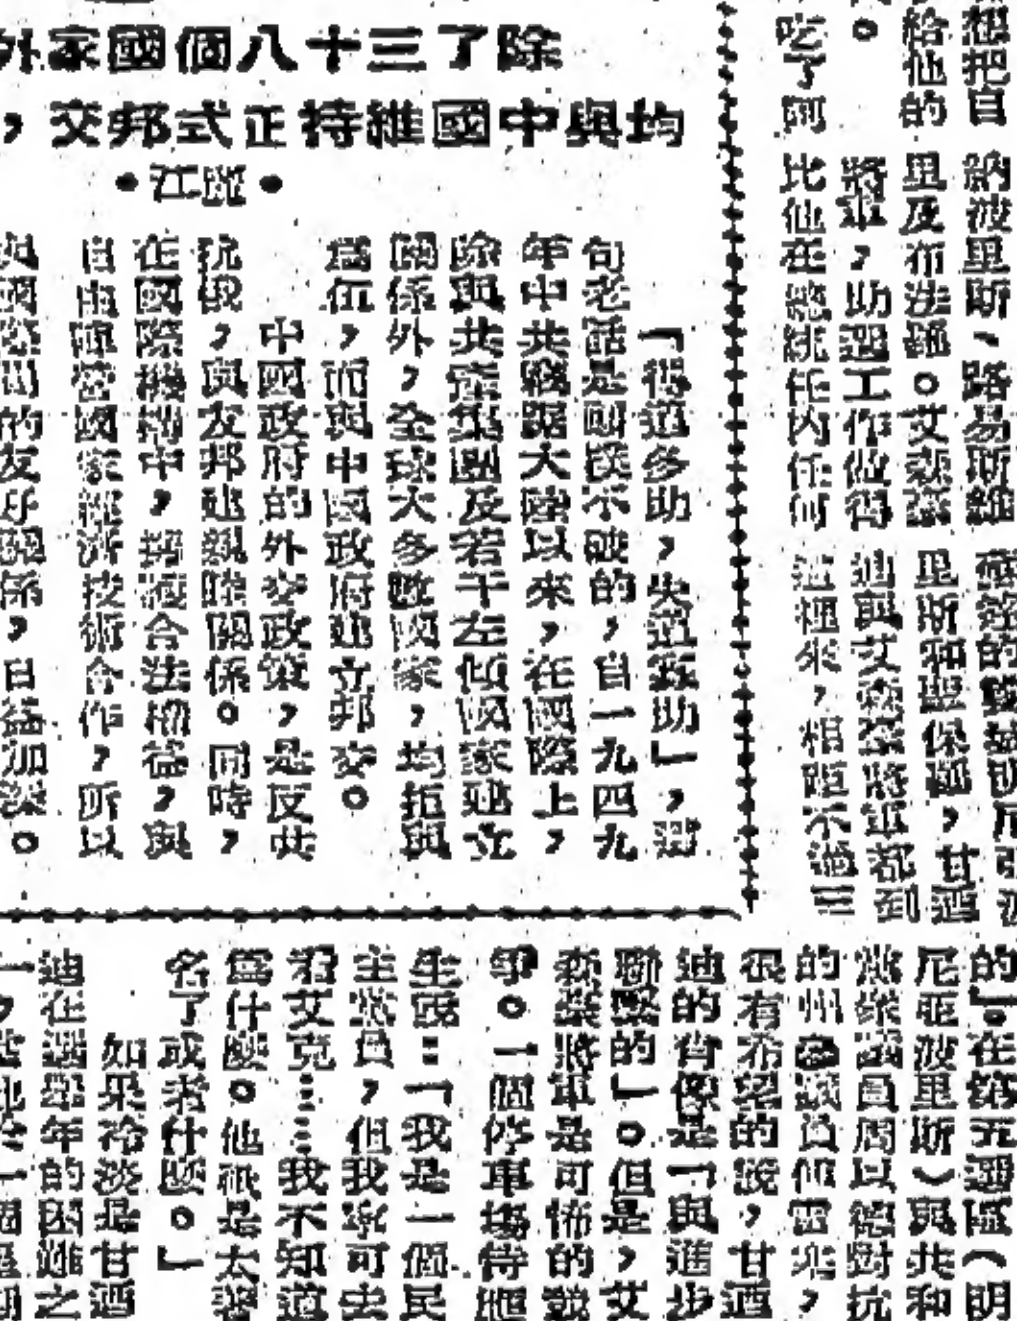 除了三十八個國家外
均與中國維持正式邦交，
•麗江•
「得道多助，失道寡助」，這
句老話是顛撲不破的，自一九四九
年中共竊踞大陸以來，在國際上，
除與共產集團及若干左傾國家建立
關係外，全球大多數國家，均拒與
為伍，而與中國政府建立邦交。
中國政府的外交政策，是反共
抗俄，與友邦建親睦關係。同時，
在國際機構中，維護合法權益，與
自由陣營國家經濟技術合作，所以
與國際間的友好關係，日益加深。
想把自
給他的
。
吃了阿
納波里斯、路易斯維
里及布法羅。艾森豪
將軍，助選工作做得
比他在總統任內任何
的
里斯和聖保羅，甘迺
迪與艾森豪將軍都到
這裡來，相距不過三
的」。在第五選區（明
尼亞波里斯）與共和
黨眾議員周以德對抗
的州參議員佛雷，
很有希望的說，甘迺
迪的肖像是「與進步
聯繫的」。但是，艾
森豪將軍是可怕的競
爭。一個停車場侍應
生說：「我是一個民
主黨員，但我寧可去
選艾克……我不知道
為什麼。他祇是太著
名了或者什麼。」
如果冷淡是甘迺
迪在選舉年的困難之
一，